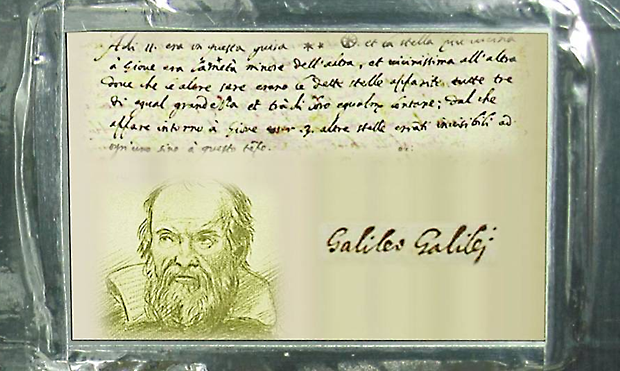 Adi 11. era in questa guisa ** et la stella più vicina
à Giove era la metà minore dell'altra, et vicinissima all'altra
dove che le altre sere erano le dette stelle apparite tutte tre
di equal grandezza et trà di loro equalm lontane; dal che
appare intorno à Giove esser 3. altre stelle erranti invisibili ad
ogn'uno sino à questo tẽpo.
Galileo Galilej